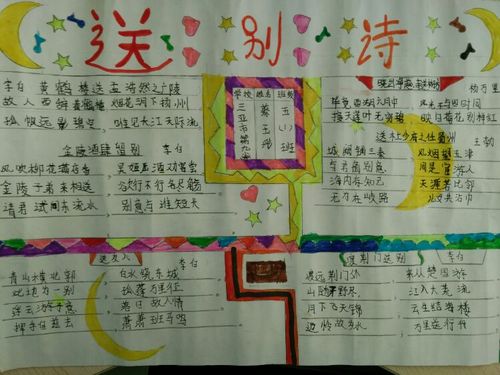 送别诗
李白 黄鹤楼送孟浩然之广陵
故人西辞黄鹤楼 烟花三月下扬州
孤帆远影碧空 唯见长江天际流
金陵酒肆留别 李白
风吹柳花满店香 吴姬压酒劝客尝
金陵子弟来相送 欲行不行各尽觞
请君试问东流水 别意与谁短
学校 姓名 班级
三亚市第九
五(1)班
杨万里
毕竟西湖六月中 风光不与四时同
接天莲叶无穷碧 映日荷花别样红
送杜少府之任蜀州 王勃
城阙辅三秦 风烟望五津
与君离别意 同是宦游人
海内存知己 天涯若比邻
无为在歧路 儿女共沾巾
送友人 李白
青山横北郭 白水绕东城
此地为一别 孤蓬万里征
浮云游子意 落日故人情
挥手自兹去 萧萧班马鸣
渡荆门送别 李白
渡远荆门外 来从楚国游
山随平野尽 江入大荒流
月下飞天镜 云生结海楼
仍怜故乡水 万里送行舟